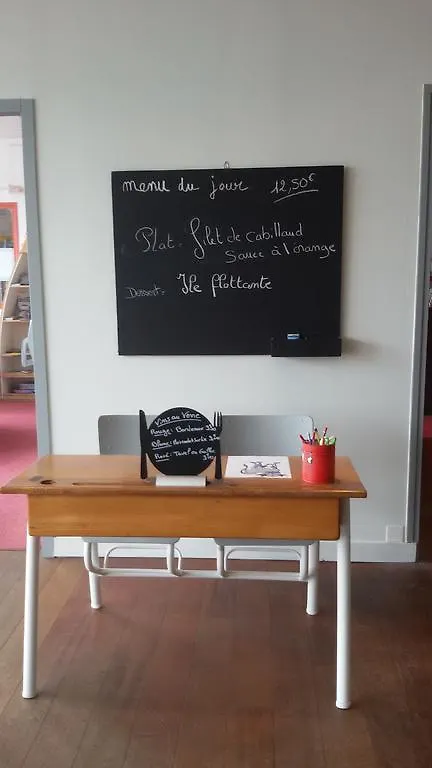 menu du jour 12,50€
Plat: filet de cabillaud
sauce à l'orange
Dessert: Ile flottante
Vins au Verre
Rouge: Bordeaux
Blanc:
Rosé: